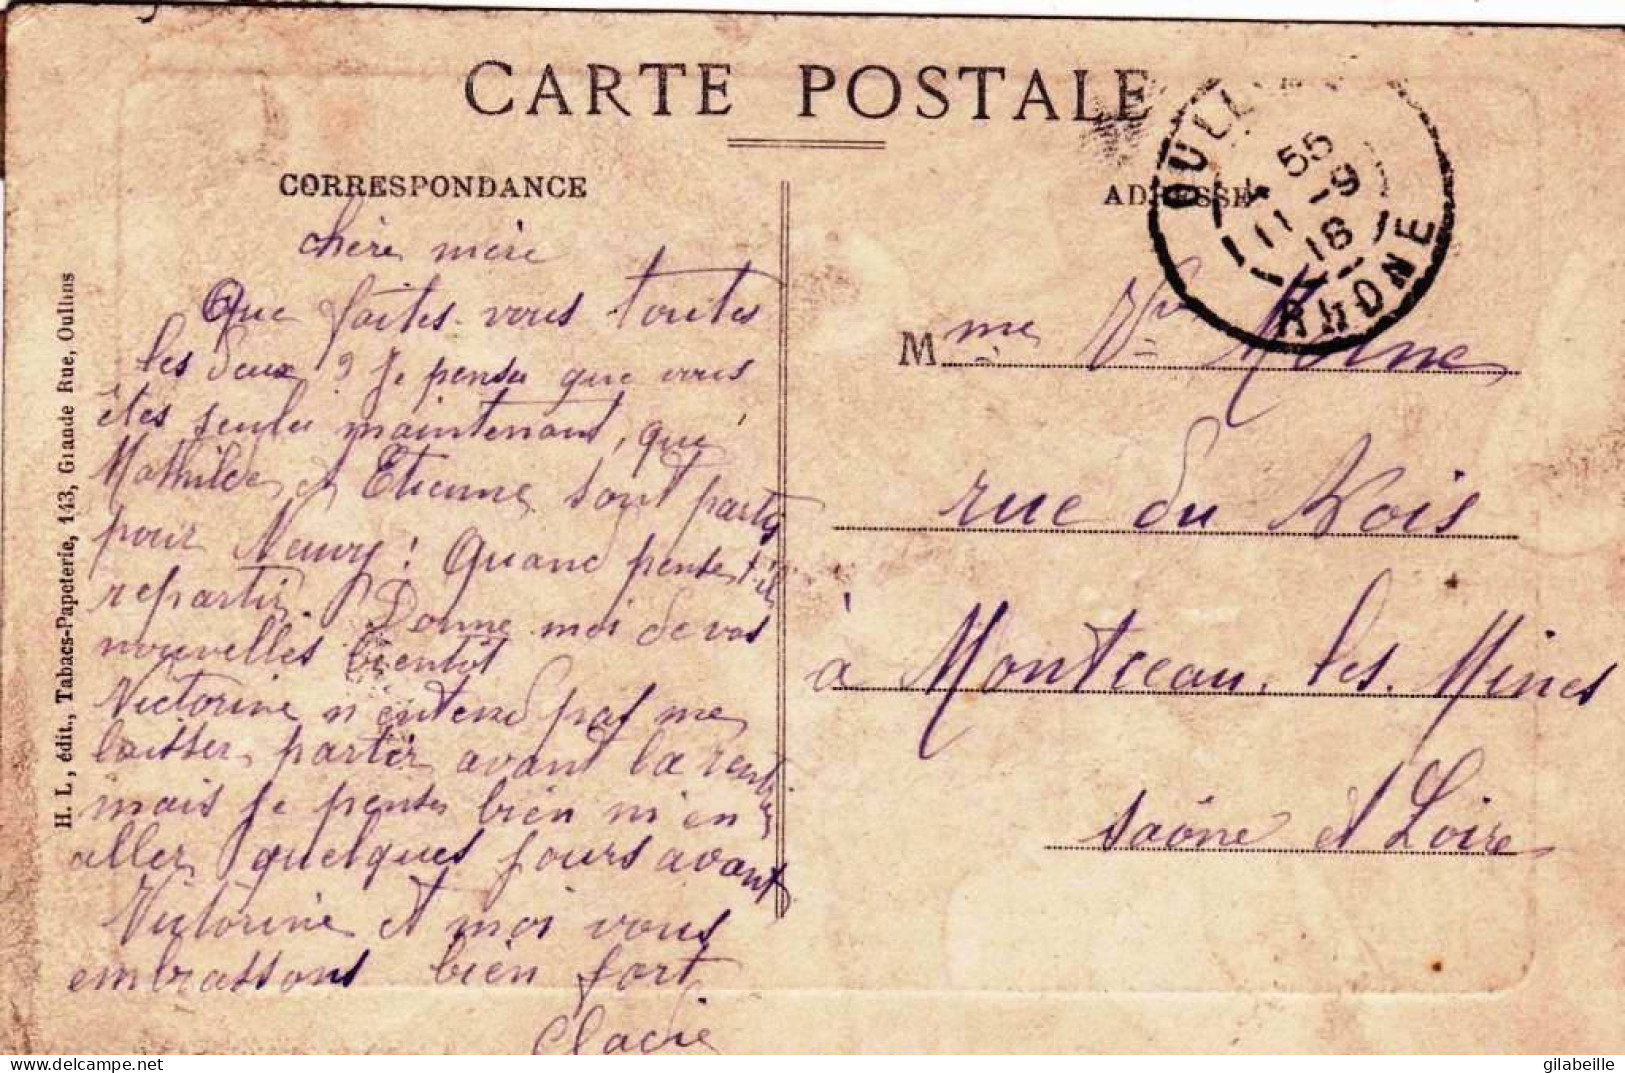 CARTE POSTALE
CORRESPONDANCE
ADRESSE
OULL
4 55
11 -9
18
RHONE
H. L., édit., Tabacs-Papeterie, 143, Grande Rue, Oullins
chère mère
Que faites-vous toutes
les deux ? Je pense que vous
êtes seules maintenant, que
Mathilde et Etienne sont partis
pour Neuvy ! Quand pense t-il
repartir. Donne moi de vos
nouvelles bientôt
Victorine n'entend pas me
laisser partir avant la rentrée
mais je pense bien m'en
aller quelques jours avant
Victorine et moi vous
embrassons bien fort
Mme Vve
rue du Bois
à Montceau-les-Mines
Saône et Loire
© gilabeille
delcampe.net